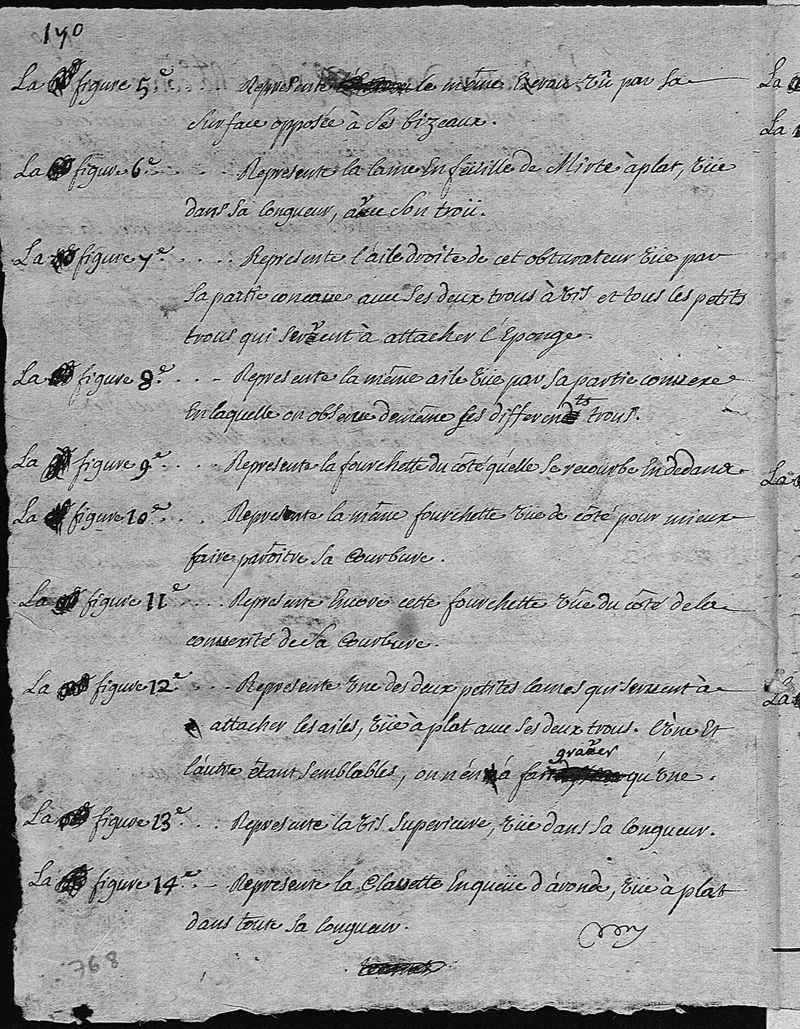 170
La figure 5e Represente le même Ecrou vû par sa
surface opposée à ses bizeaux.
La figure 6e . . . . Represente la lame En feüille de Mirte à plat, vüe
dans sa longueur, avec son troü.
La figure 7e . . . . Represente l'aile droite de cet obturateur vüe par
sa partie concave avec ses deux trous à vis et tous les petits
trous qui servent à attacher l'Eponge.
La figure 8e . . . - Represente la même aile vüe par sa partie convexe
En laquelle on observe de même ses differents trous.
La figure 9e . . . Represente la fourchette du côté qu'elle se recourbe En dedans
La figure 10e . . . Represente la même fourchette vüe de côté pour mieux
faire paroître sa Courbure.
La figure 11e . . . . Represente Encore cette fourchette vüe du côté de la
convexité de sa Courbure.
La figure 12e . . . Represente vne des deux petites lames qui servent à
attacher les ailes, vüe à plat avec ses deux trous. L'vne Et
l'autre étant semblables, on n'en à fait graver qu'vne.
La figure 13e . . . Represente la vis Superieure, vüe dans sa longueur.
La figure 14e . . - Represente la Clavette En queüe d'aronde, vüe à plat
dans toute sa longueur.
768
La
La
La
La